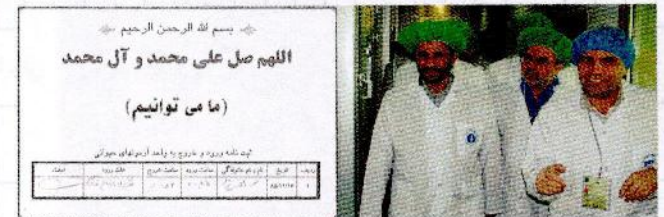 بسم الله الرحمن الرحیم
اللهم صل علی محمد و آل محمد
(ما می توانیم)
ثبت نامه ورود و خروج به واحد آزمونهای حیوانی
ردیف تاریخ نام و نام خانوادگی ساعت ورود ساعت خروج علت ورود امضاء
۱